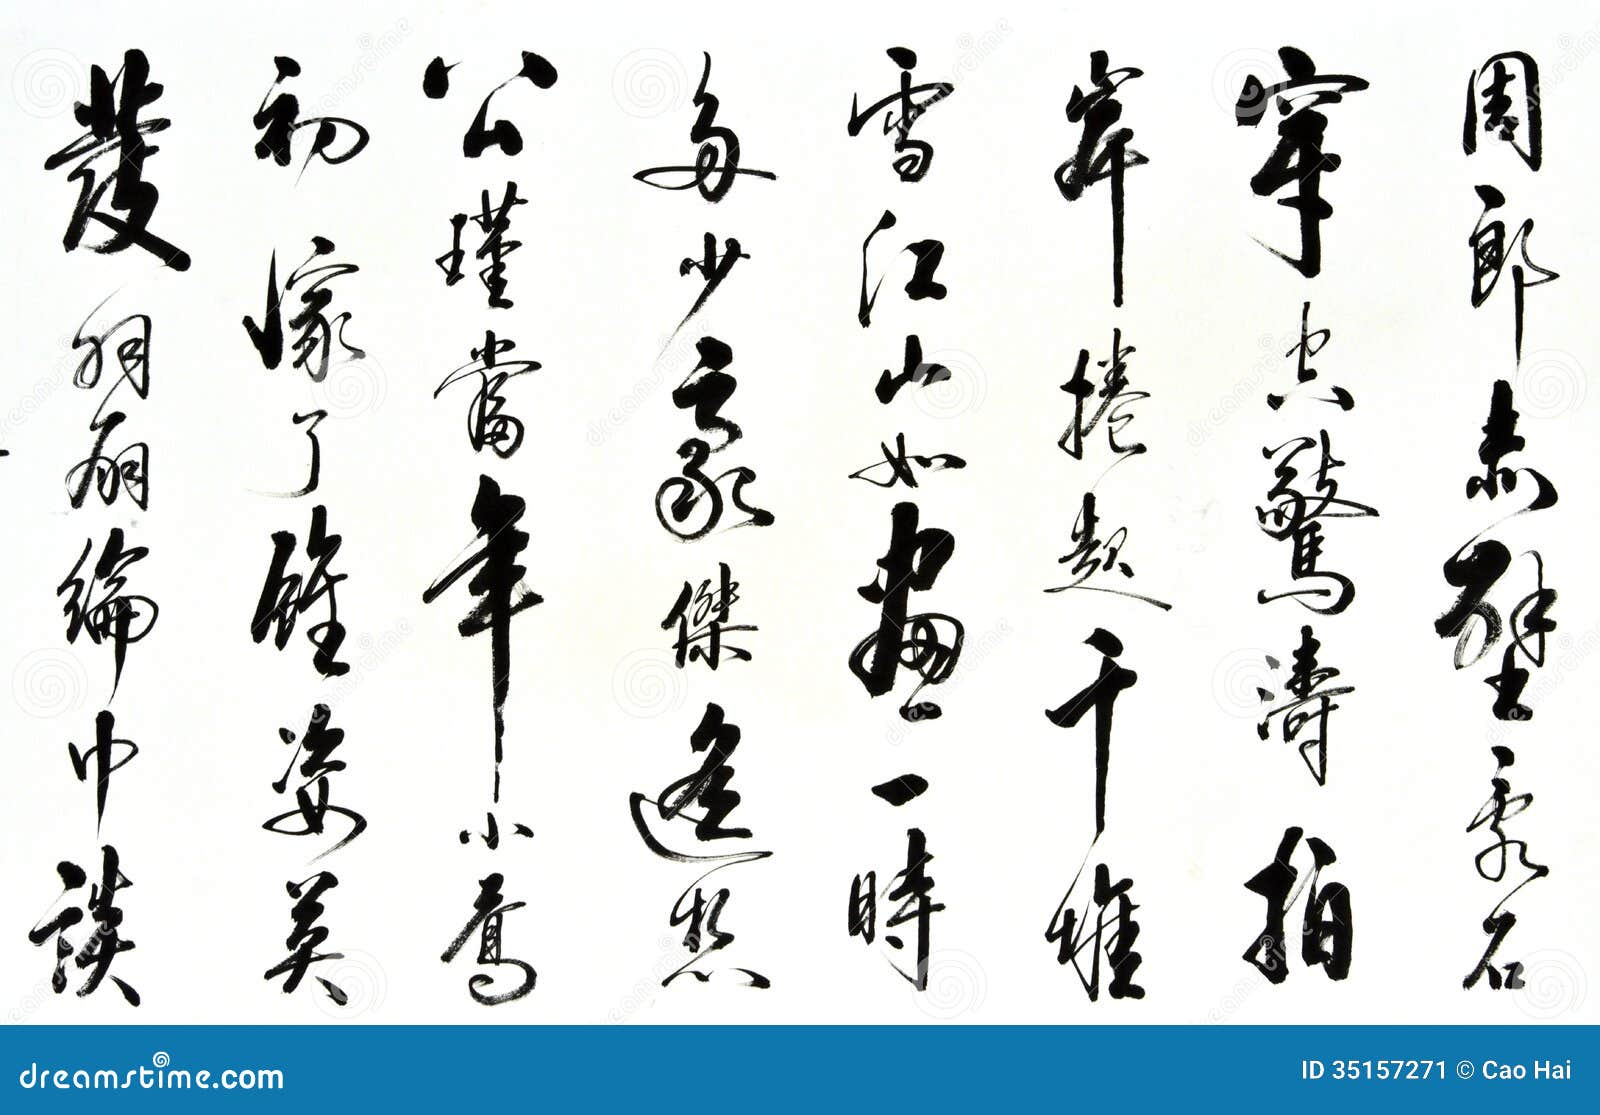 周郎赤壁亂石
穿空驚濤拍
岸捲起千堆
雪江山如畫一時
多少豪傑遙想
公瑾當年小喬
初嫁了雄姿英
發羽扇綸巾談
dreamstime.com
ID 35157271 © Cao Hai